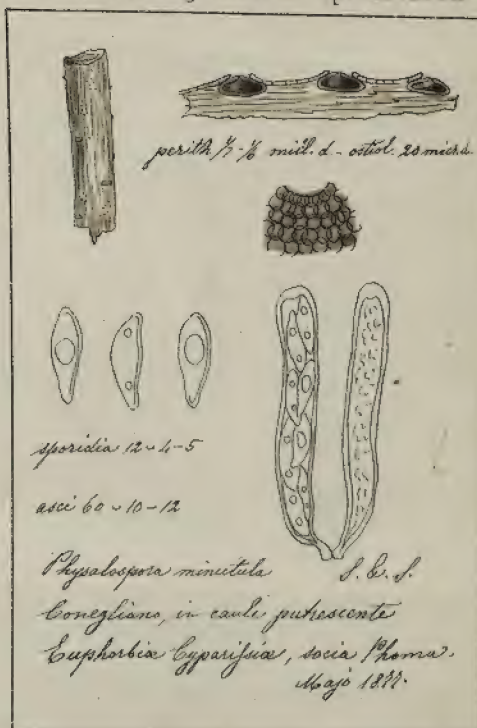 perith ⅓-⅙ mill. d - ostiol. 20 micr. d.
sporidia 12-4-5
asci 60-10-12
Physalospora minutula S. & S.
Conegliano, in caule putrescente
Euphorbiæ Cyparissiæ, socia Phoma.
Majo